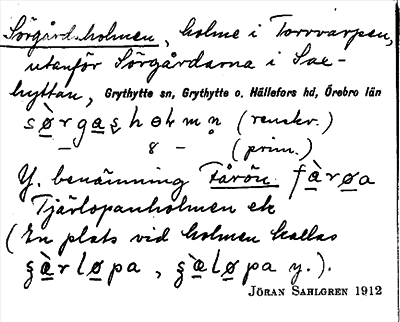 Sörgårdsholmen, holme i Torrvarpen,
utanför Sörgårdarna i Sax-
hyttan, Grythytte sn, Grythytte o. Hällefors hd, Örebro län
(renskr.)
8 – (prim.)
Y. benämning Fårön fàrøa
Tjärlopanholmen ell
(En plats vid holmen kallas
y.).
JÖRAN SAHLGREN 1912